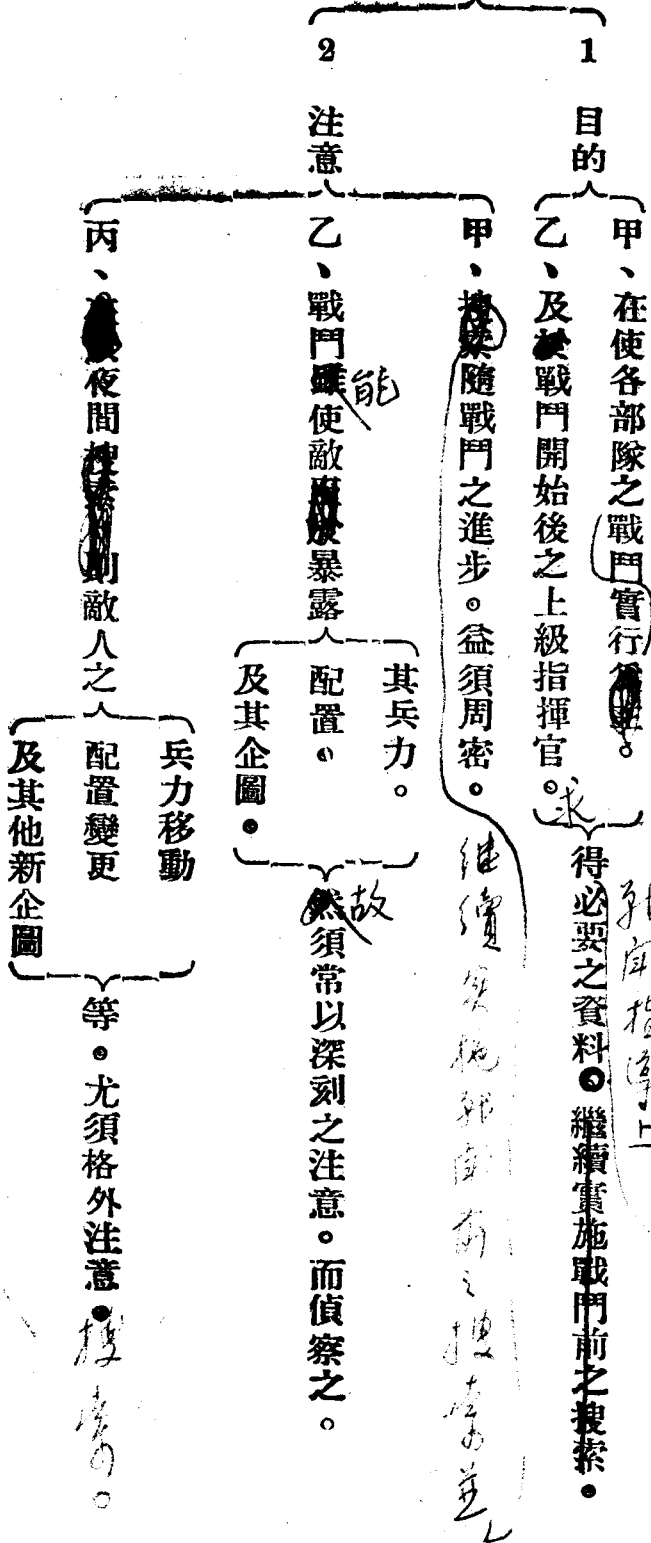 1 目的
甲、在使各部隊之戰鬥實行
乙、及於戰鬥開始後之上級指揮官。
求
得必要之資料。繼續實施戰鬥前之搜索。
戰鬥指導上
2 注意
甲、搜索隨戰鬥之進步。益須周密。
继續實施戰鬥前之搜索並
乙、戰鬥雖使敵暴露
能
其兵力。
配置。
及其企圖。
然須常以深刻之注意。而偵察之。
故
丙、夜間搜索則敵人之
兵力移動
配置變更
及其他新企圖
等。尤須格外注意。
搜索。